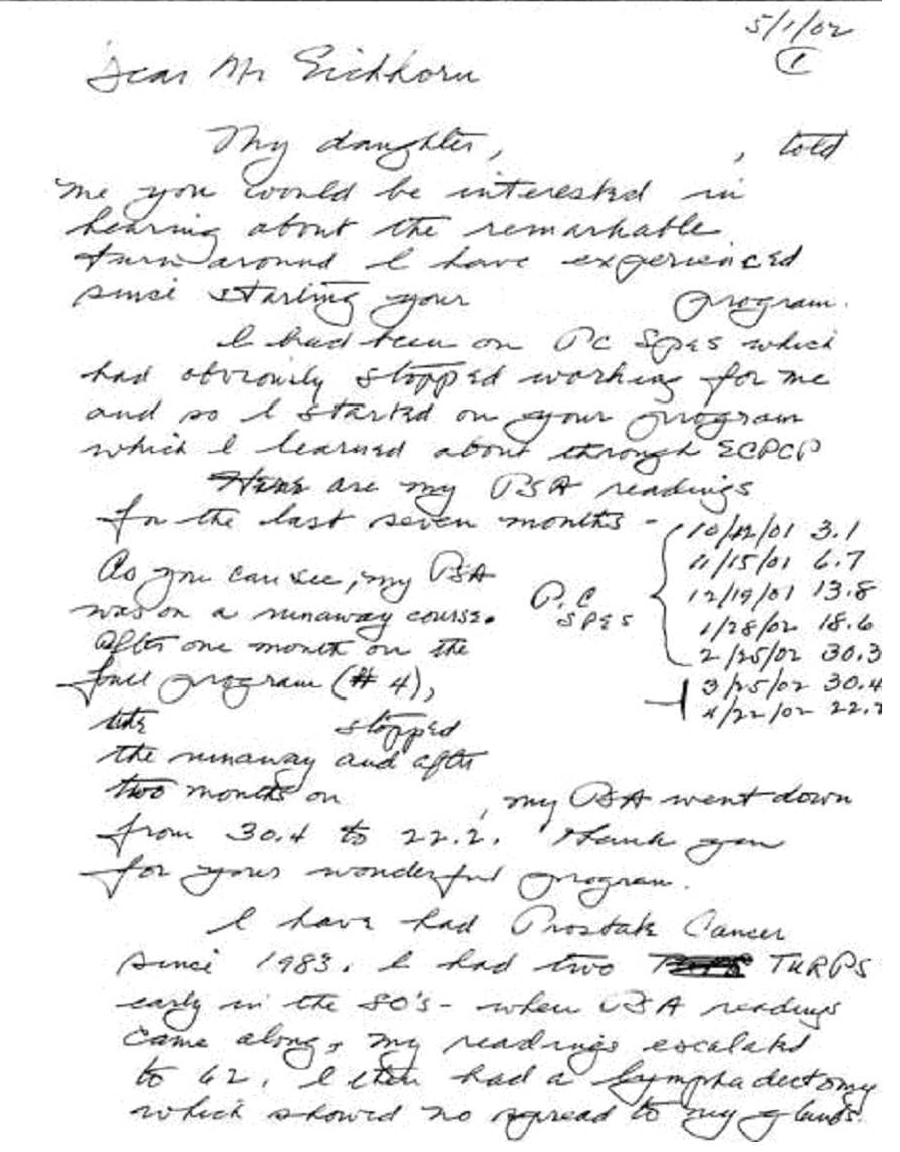 5/1/02
1
Dear Mr Eichhorn
My daughter, , told
me you would be interested in
hearing about the remarkable
turn around I have experienced
since starting your program.
I had been on PC Spes which
had obviously stopped working for me
and so I started on your program
which I learned about through ECPCP
Here are my PSA readings
for the last seven months -
10/12/01 3.1
11/15/01 6.7
12/19/01 13.8
1/28/02 18.6
2/25/02 30.3
3/25/02 30.4
4/22/02 22.2
P.C
SPES
As you can see, my PSA
was on a runaway course.
After one month on the
full program (#4),
the stopped
the runaway and after
two months on , my PSA went down
from 30.4 to 22.2. Thank you
for your wonderful program.
I have had Prostate Cancer
since 1983. I had two TURPS
early in the 80's - when PSA readings
came along, my readings escalated
to 62. I then had a lymphadectomy
which showed no spread to my glands.